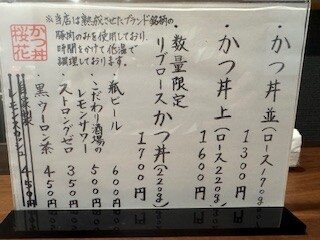 ・かつ丼 並(ロース170g)
1300円
・かつ丼 上(ロース220g)
1600円
数量限定
リブロースかつ丼(220g)
1700円
※当店は熟成させたブランド銘柄の
豚肉のみを使用しており、
時間をかけて低温で
調理しております。
・瓶ビール 600円
・こだわり酒場の
レモンサワー 500円
・ストロングゼロ 350円
・黒ウーロン茶 450円
自家製
レモンスカッシュ 450円
かつ丼
桜花